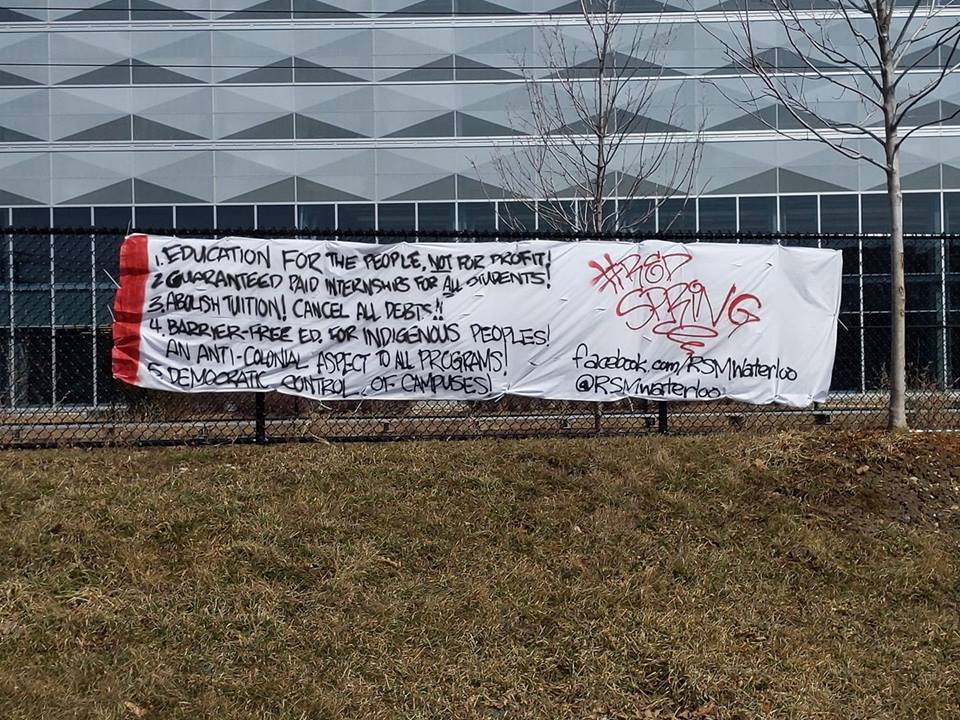 1. EDUCATION FOR THE PEOPLE, NOT FOR PROFIT!
2 GUARANTEED PAID INTERNSHIPS FOR ALL STUDENTS!
3. ABOLISH TUITION! CANCEL ALL DEBTS!!
4. BARRIER-FREE ED. FOR INDIGENOUS PEOPLES!
AN ANTI-COLONIAL ASPECT TO ALL PROGRAMS!
5. DEMOCRATIC CONTROL OF CAMPUSES!
#RED
SPRING
facebook.com/RSMWaterloo
@RSMWaterloo